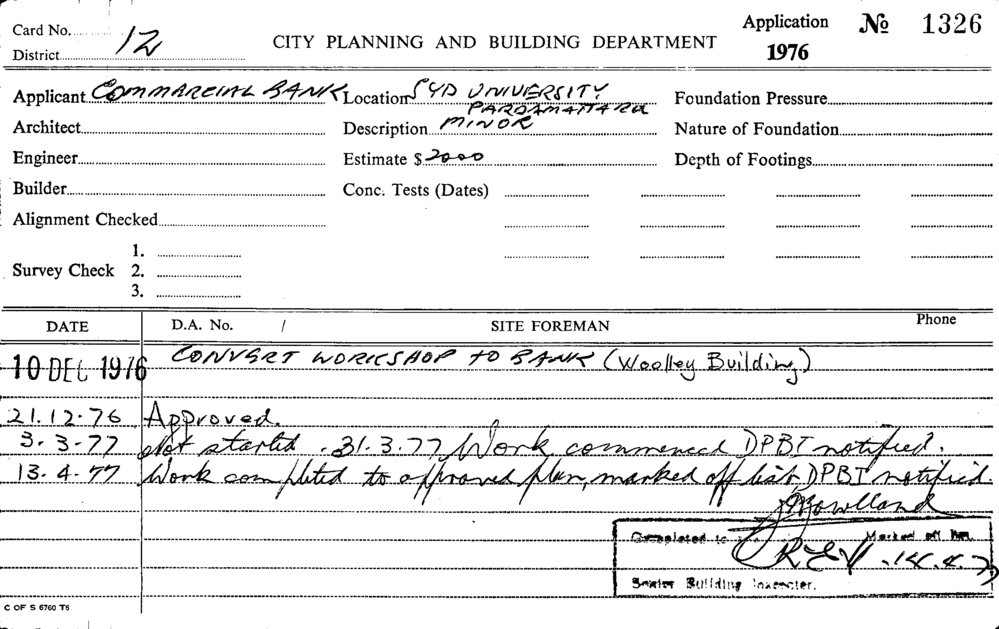 Card No. Application № 1326
District 12 CITY PLANNING AND BUILDING DEPARTMENT 1976
Applicant COMMARCIAL BANK Location SYD UNIVERSITY Foundation Pressure
PARRAMATTA RD
Architect Description MINOR Nature of Foundation
Engineer Estimate $ 2000 Depth of Footings
Builder Conc. Tests (Dates)
Alignment Checked
1.
Survey Check 2.
3.
DATE D.A. No. / SITE FOREMAN Phone
10 DEC 1976 CONVERT WORKSHOP TO BANK (Woolley Building)
21.12.76 Approved.
3.3.77 Not started. 31.3.77 Work commenced DPBI notified.
13.4.77 Work completed to approved plan, marked off list, DPBI notified.
Completed to Marked off
14.4.77
Senior Building Inspector.
C OF S 6760 T5